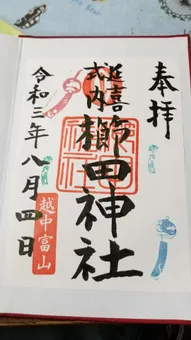 奉拝
延喜
式内
櫛田神社
越中富山
令和三年八月四日